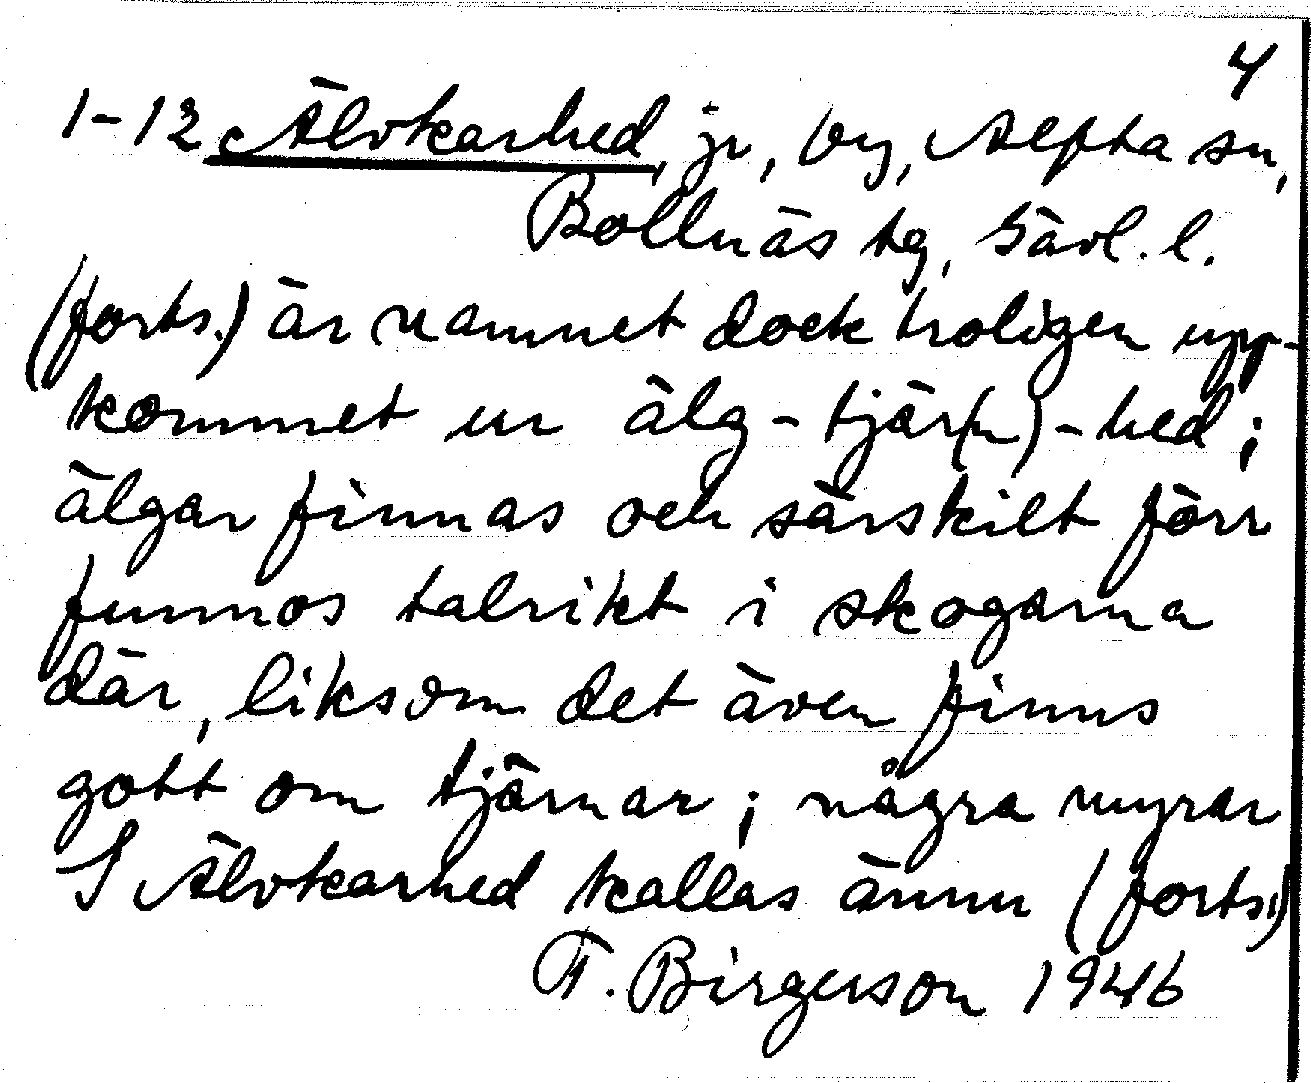 4
1-12 Älvkarhed, jr, by, Alfta sn,
Bollnäs tg, Gävl. l.
(forts.) är namnet dock troligen upp-
kommet ur älg-tjär(n)-hed;
älgar finnas och särskilt förr
funnos talrikt i skogarna
där, liksom det även finns
gott om tjärnar; några myrar
I Älvkarhed kallas ännu (forts.)
F. Birgerson 1946